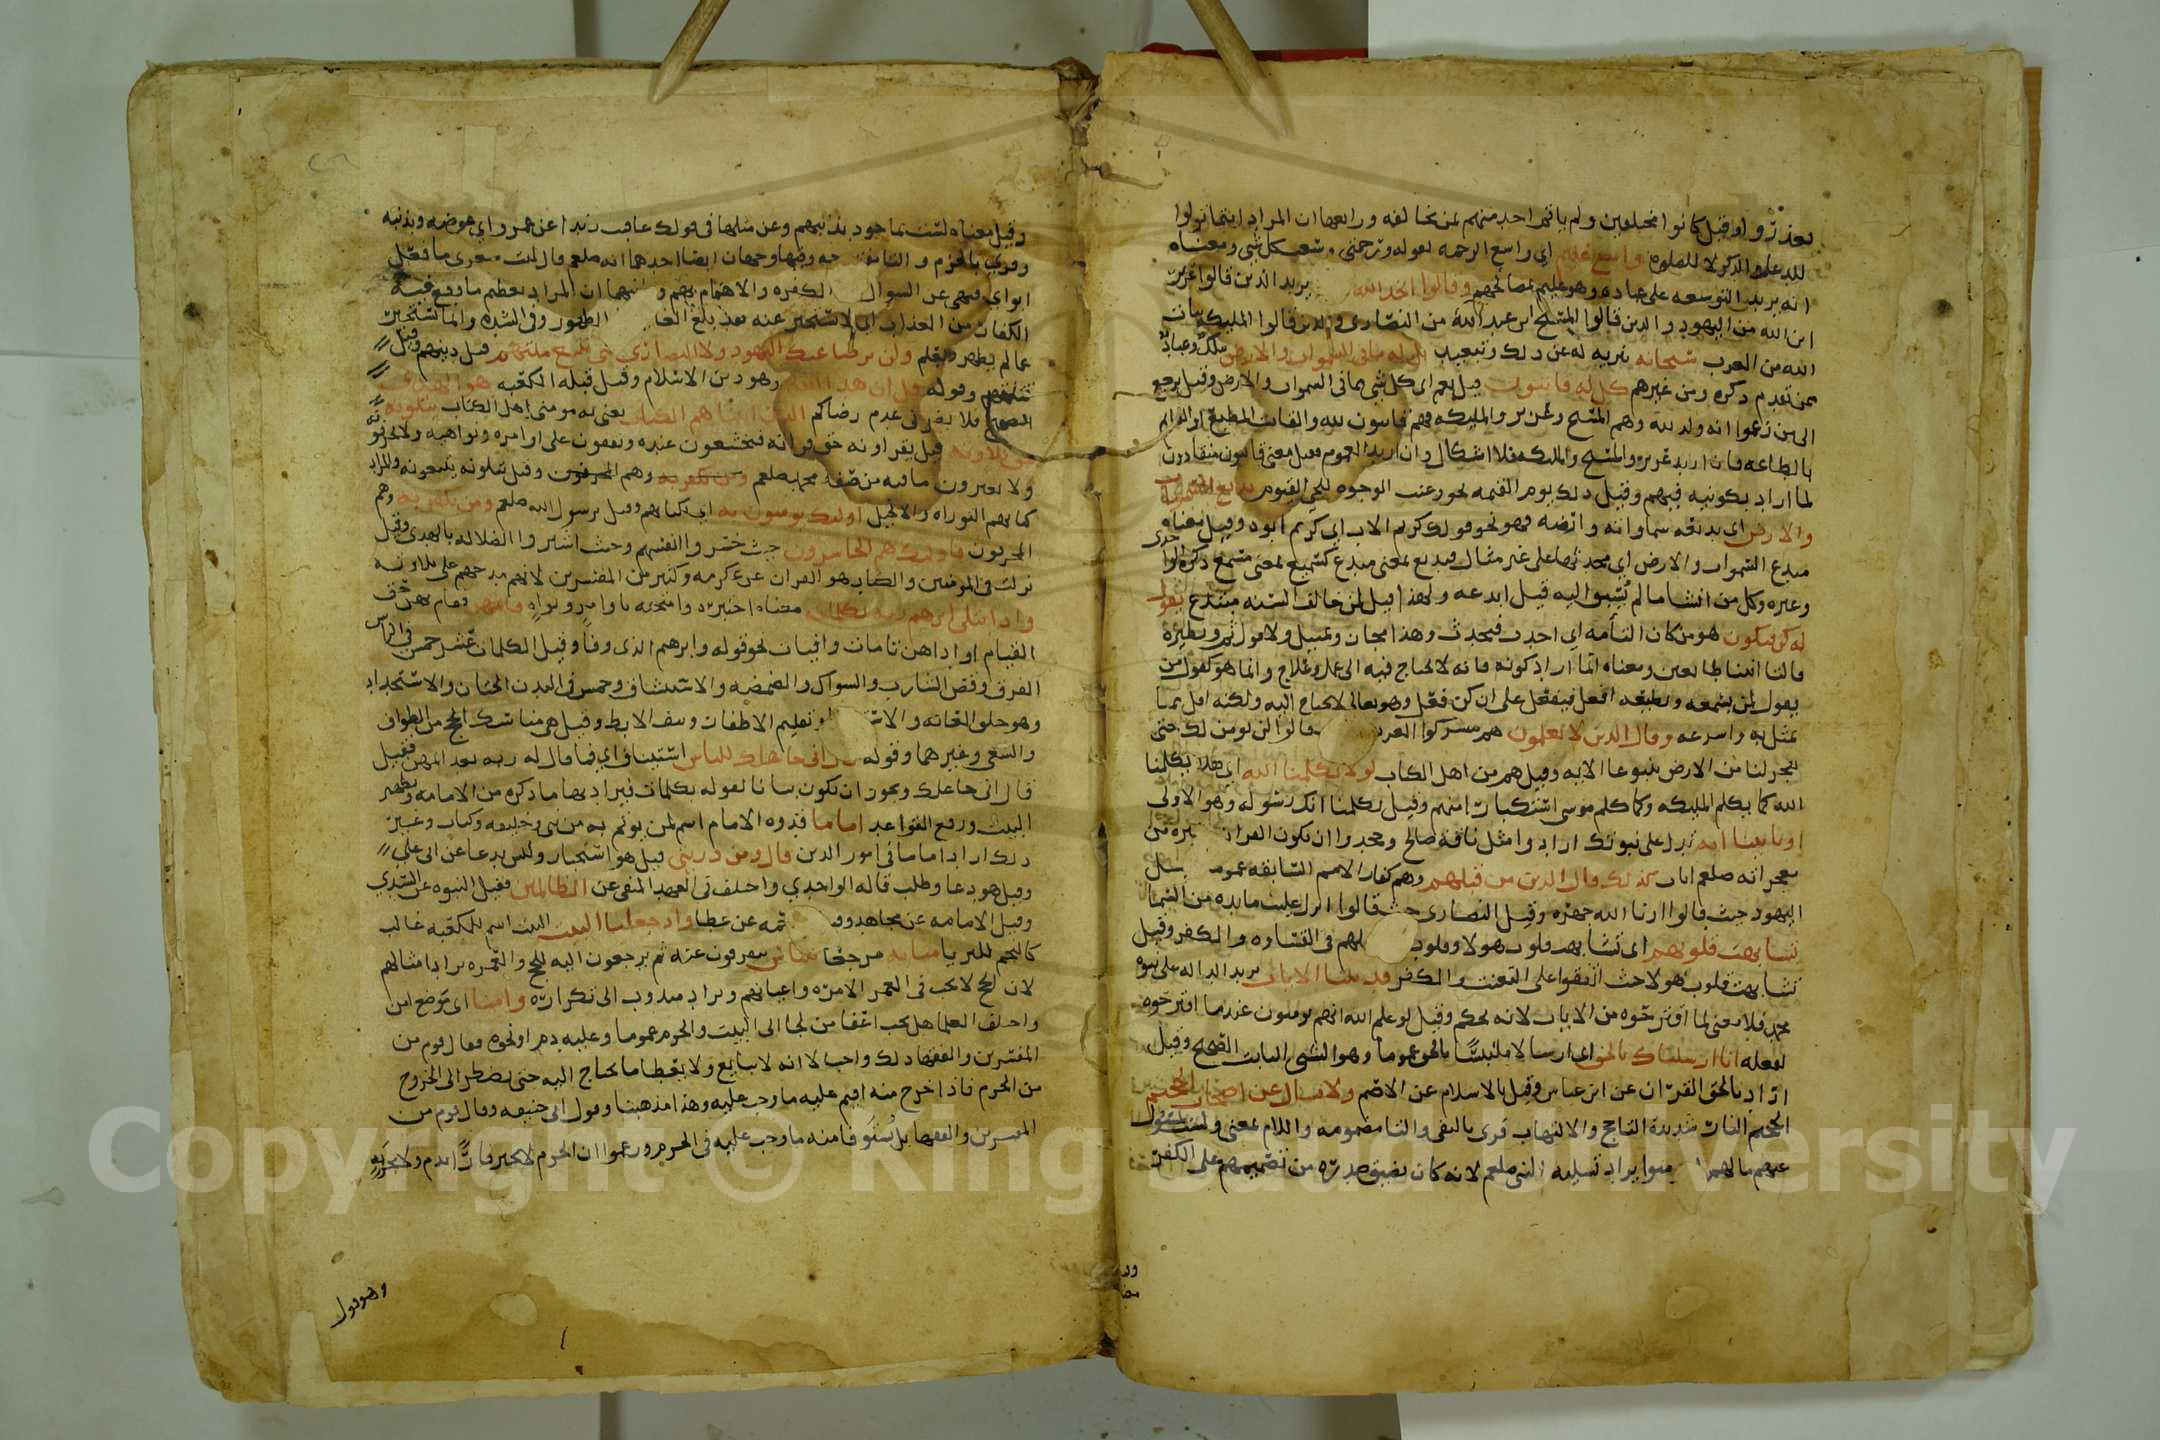 بعذر واو وقيل كانوا مختلفين ولم ياثم احد منهم لمن خالفه ورابعها ان المراد اينما تولوا
للدعا والذكر لا للصلوة واسع عليم اي واسع الرحمه لقوله ورحمتي وسعت كل شي ومعناه
انه يريد التوسعه على عباده وهو عليم بمصالحهم وقالوا اتخذ الله يريد الذين قالوا عزير
ابن الله من اليهود والذين قالوا المسيح ابن الله من النصارى والذين قالوا المليكه بنات
الله من العرب سبحانه تنزيه له عن ذلك وتبعيد بل له ما في السموات والارض ملك وعباد
ممن تقدم ذكره ومن غيرهم كل له قانتون قيل يعم اي كل شي مما في السموات والارض وقيل يرجع
الى من زعموا انه ولد لله وهم المسيح وعزير والمليكه فهم قانتون لله والقانت المطيع او الدايم
بالطاعه فان اريد عزير والمسيح والمليكه فلا اشكال وان اريد العموم فقيل معنى قانتون منقادون
لما اراد بكونيه فيهم وقيل ذلك يوم القيمه نحو وعنت الوجوه للحي القيوم بديع السموات
والارض اي بديعه سماواته وارضه فهو نحو قولك كريم الاب اي كريم ابوه وقيل معناه
مبدع السموات والارض اي محدثها على غير مثال فبديع بمعنى مبدع كسميع بمعنى مسمع ذكره الواحدي
وغيره وكل من انشا ما لم يُسبق اليه قيل ابدعه ولهذا قيل لمن خالف السنه مبتدع يقول
له كن فيكون هو من كان التامه اي احدث فيحدث وهذا مجاز وتمثيل ولا قول ثم ونظيره
قالتا اتينا طايعين ومعناه انما اراد كونه فانه لا يحتاج فيه الى عمل وعلاج وانما هو كقول من
يقول لمن يسمعه ويطيعه افعل فيفعل على ان كن فعل وهو تعالى لا يحتاج اليه ولكنه اقل مما
يمثل به واسرعه وقال الذين لا يعلمون هم مشركوا العرب قالوا لن نومن لك حتى
تفجر لنا من الارض ينبوعا الايه وقيل هم من اهل الكتاب لولا يكلمنا الله اي هلا يكلمنا
الله كما يكلم المليكه وكما كلم موسى استكبارا منهم وقيل يكلمنا انك رسوله وهو الاولى
او تاتينا ايه تدل على نبوتك ارادوا مثل ناقه صالح وجحدوا ان يكون القران من
معجزاته صلعم ايات كذلك قال الذين من قبلهم وهم كفار الامم السابقه عموما
اليهود حيث قالوا ارنا الله جهره وقيل النصارى حيث قالوا انزل علينا مايده من السما
تشابهت قلوبهم اي تشابهت قلوب هولا وقلوب في القساوه والكفر وقيل
تشابهت قلوب هولا حيث اتفقوا على التعنت والكفر قد بينا الايات يريد الداله على نبوه
محمد فلا معنى لما اقترحوه من الايات لانه تحكم وقيل لو علم الله انهم يومنون عند ما اقترحوه
لفعله انا ارسلناك بالحق اي ارسالا ملتبسًا بالحق عموما وهو الشي الثابت الصحيح وقيل
اراد بالحق القرآن عن ابن عباس وقيل بالاسلام عن الاصم ولا تسال عن اصحاب الجحيم
الجحيم النار شديدة التاجج والالتهاب قرى بالنفي والتا مضمومه واللام بمعنى ولست مسئول
عنهم ما لهم لم يومنوا يراد تسليه النبي صلعم لانه كان يضيق صدره من تصميمهم على الكفر
وقيل معناه لست بماخوذ بذنبهم
وقرى بالجزم وفيها وجهان ايضا احدهما انه صلعم قال ليت شعري ما فعل
ابواي فنهي عن السوال الكفره والاهتمام بهم ان المراد تعظيم ما وقع فيه
الكفار من العذاب اي لا تستخبر عنه فقد بلغ في الشده وانما يستخبر
عما لم يظهر ويعلم ولن ترضا عنك اليهود ولا النصارى حتى تتبع ملتهم قيل دينهم وقيل
قبلتهم وقوله قل ان هدا الله وهو دين الاسلام وقيل قبله الكعبه هو الهدى
الصحيح فلا يضر في عدم رضاكم الذين اتيناهم الكتاب يعني به مومني اهل الكتاب يتلونه
حق تلاوته قيل يقراونه حق قرانه فيخشعون عنده ويقفون على اوامره ونواهيه ولا يحرفونه
ولا يغيرون ما فيه من صفه محمد صلعم ومن يكفر به وهم المحرفون وقيل يتلونه يتبعونه والمراد
كتابهم التوراه والانجيل اولئك يومنون به اي بكتابهم وقيل برسول الله صلعم ومن يكفر به وهم
المحرفون فاولئك هم الخاسرون حيث خسروا انفسهم وحيث اشتروا الضلاله بالهدى وقيل
نزلت في المومنين والكتاب هو القران عن عكرمه وكثير من المفسرين لانهم مدحهم على تلاوته
واذ ابتلى ابرهيم ربه بكلمات معناه اختبره وامتحنه باوامر ونواه فاتمهن وقام بهن حق
القيام او اداهن تامات وافيات نحو قوله وابرهيم الذي وفا وقيل الكلمات عشر خمس في الراس
الفرق وقص الشارب والسواك والمضمضه والاستنشاق وخمس في البدن الختان والاستحداد
وهو حلق العانه والاستنجا وتقليم الاظفار ونتف الابط وقيل هي مناسك الحج من الطواف
والسعي وغيرهما وقوله قال اني جاعلك للناس استيناف اي فما قال له ربه بعد اتمهن فقيل
قال اني جاعلك ويجوز ان يكون بيانا لقوله بكلمات فيراد بها ما ذكره من الامامه وتطهير
البيت ورفع القواعد اماما قدوه الامام اسم لمن يوتم به من نبي وخليفه وكتاب وغيره
ذلك اراد اماما في امور الدين قال ومن ذريتي قيل هو استخبار وليس بدعا عن ابي علي
وقيل هو دعا وطلب قاله الواحدي واختلف في العهد المنفي عن الظالمين فقيل النبوه عن السدي
وقيل الامامه عن مجاهد عن عطا واذ جعلنا البيت البيت اسم للكعبه غالب
كالنجم للثريا مثابه مرجعا للناس يتفرقون عنه ثم يرجعون اليه للحج والعمره يراد امثالهم
لان الحج لا يجب في العمر الا مره واعيانهم ويراد مندوب الى تكراره وامنا اي موضع امن
واختلف العلما هل يجب امن من لجا الى البيت والحرم عموما وعليه دم او نحوه فقال قوم من
المفسرين والفقها ذلك واجب الا انه لا يبايع ولا يعطا ما يحتاج اليه حتى يضطر الى الخروج
من الحرم فاذا خرج منه اقيم عليه ما وجب عليه وهذا مذهبنا وقول ابي حنيفه وقال قوم من
المفسرين والفقها بل يُستوفا منه ما وجب عليه في الحرم وزعموا ان الحرم لا يجير فارًّا بدم ولا بخربه
وهو قول
Copyright © King Saud University